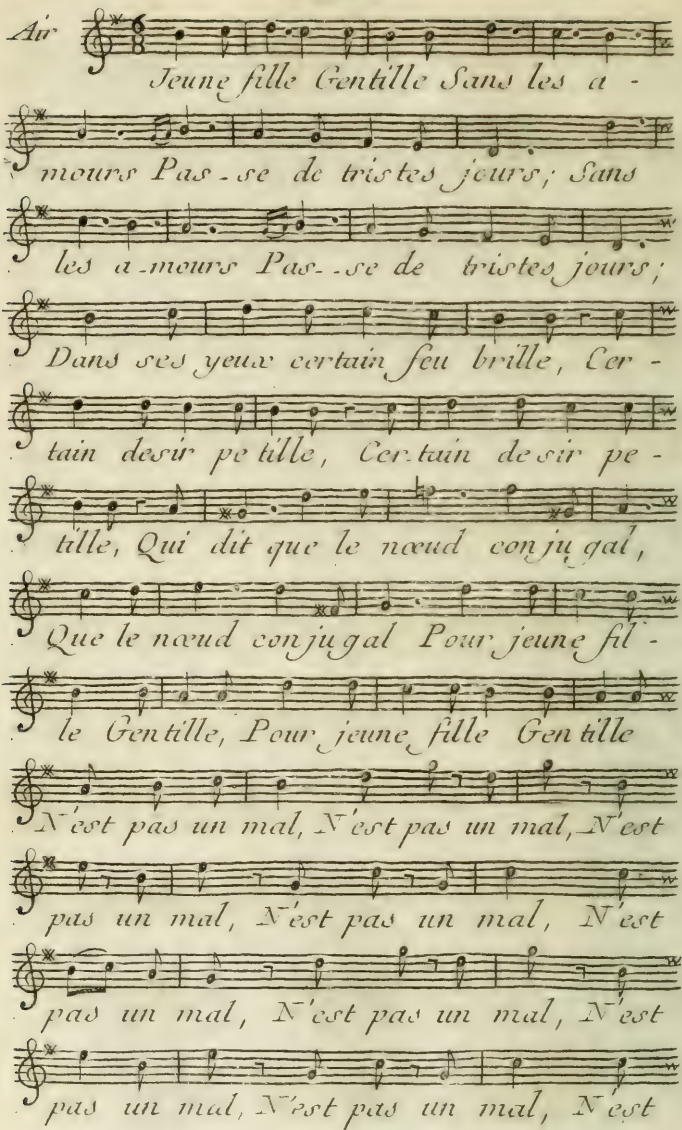 Air 6 8
Jeune fille Gentille Sans les a -
mours Pas - se de tristes jours; Sans
les a - mours Pas - - se de tristes jours;
Dans ses yeux certain feu brille, Cer -
tain desir pe tille, Cer - tain desir pe -
tille, Qui dit que le nœud con ju gal,
Que le nœud con ju gal Pour jeune fil -
le Gentille, Pour jeune fille Gen tille
N'est pas un mal, N'est pas un mal, N'est
pas un mal, N'est pas un mal, N'est
pas un mal, N'est pas un mal, N'est
pas un mal, N'est pas un mal, N'est